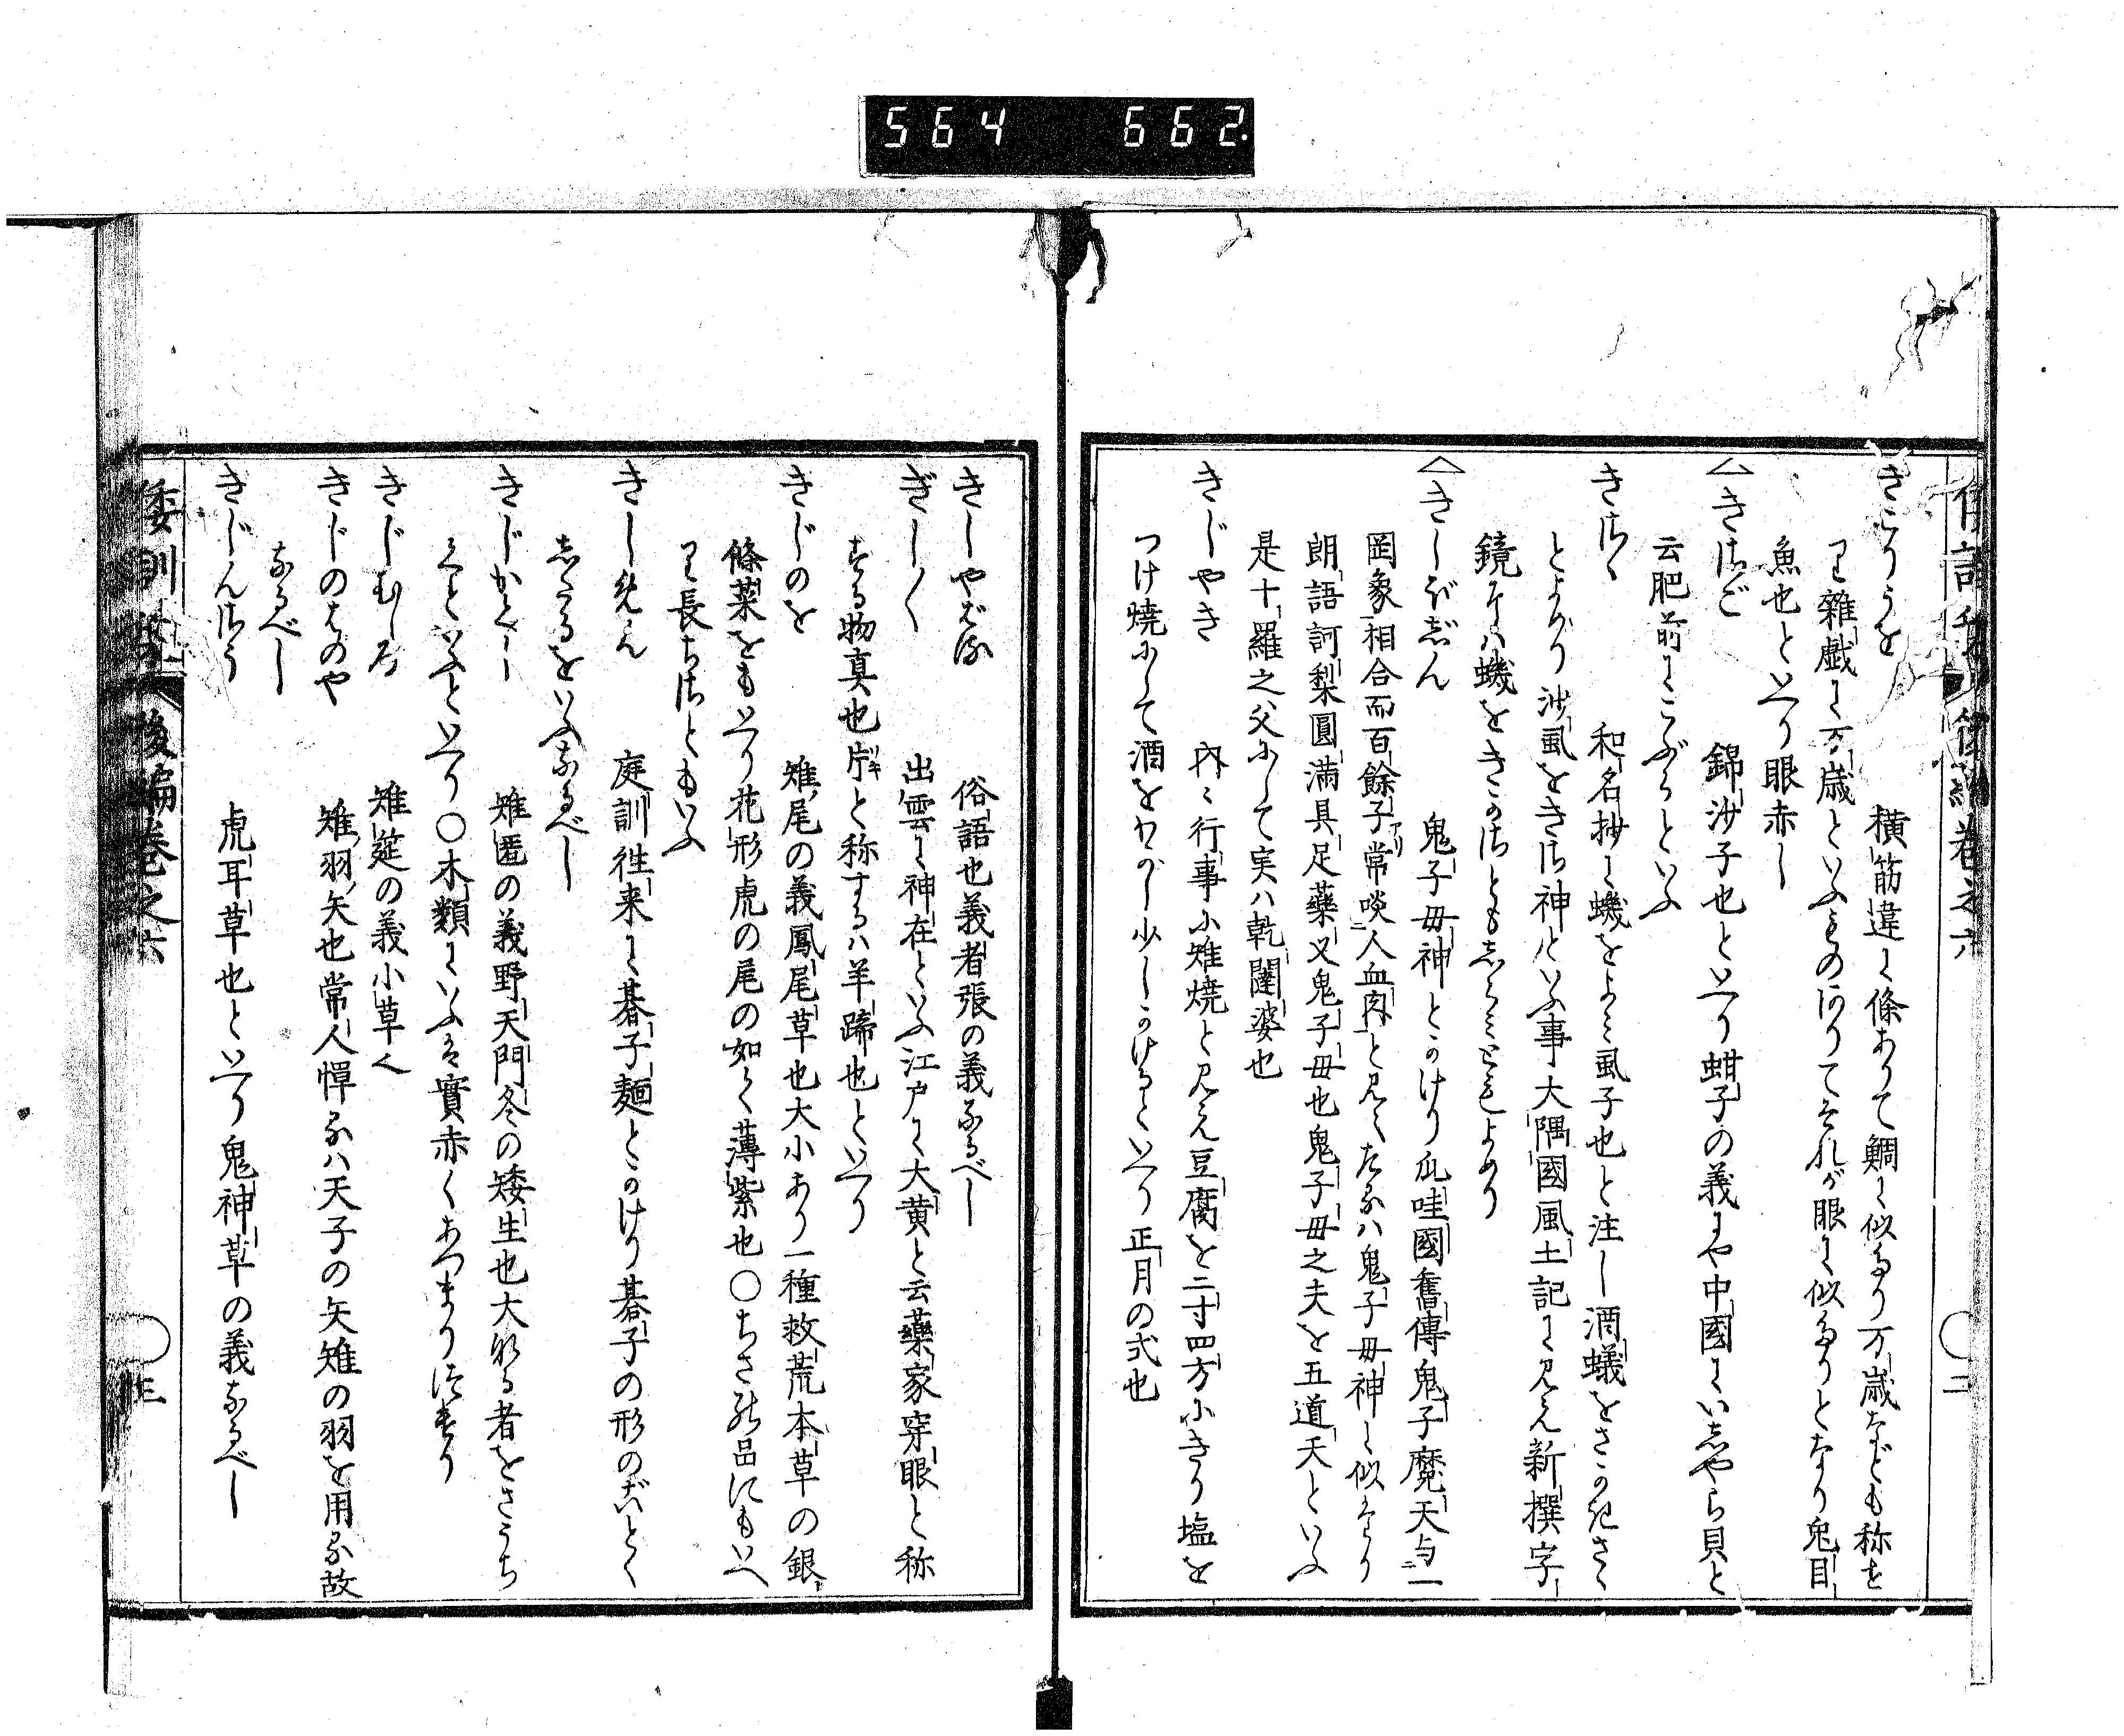 564 662
きこりうを　横筋違に條ありて鯛に似たり万歳なども称せ
り雜戯に万歳といふものありてそれが眼に似たりとなり鬼目
魚也といへり眼赤し
きさご　錦沙子也といへり蚶子の義にや中國にいしやら貝と
云肥前にこぶらといふ
きさゝ　和名抄に蟣をよみ虱子也と注し酒蟻をさかきさゝ
とよめり沙虱をきさ神といふ事大隅國風土記に見え新撰字
鏡にハ蟣をきかさともしらみともよめり
きしぼじん　鬼子母神とかけり瓜哇國舊傳鬼子魔天与一
罔象相合而百餘子常啖人血肉と見えたるハ鬼子母神に似たり
朗語訶梨圓滿具足藥叉鬼子母也鬼子母之夫を五道天といふ
是十羅之父にして実ハ乾闥婆也
きじやき　内々行事に雉焼と見え豆腐を二寸四方にきり塩を
つけ焼にして酒をわかし少しかけるといへり正月の式也
倭訓栞後編巻之六　二
きしやばる　俗語也義者張の義なるべし
ぎし〳〵　出雲に神在といふ江戸に大黄と云藥家穿眼と称
する物真也ギシと称するハ羊蹄也といへり
きじのを　雉尾の義鳳尾草也大小あり一種救荒本草の銀
條菜をもいへり花形虎の尾の如く薄紫也〇ちさの品にもいへ
り長ちさともいふ
きしめん　庭訓徃来に碁子麺とかけり碁子の形のごとく
したるをいふなるべし
きじかくし　雉匿の義野天門冬の矮生也大なる者をさうち
くといふといへり〇木類にいふは實赤くあつまりつけり
きじむしろ　雉筵の義小草く
きじのはのや　雉羽矢也常人憚るハ天子の矢雉の羽を用る故
なるべし
きじんさう　虎耳草也といへり鬼神草の義なるべし
倭訓栞後編巻之六　三